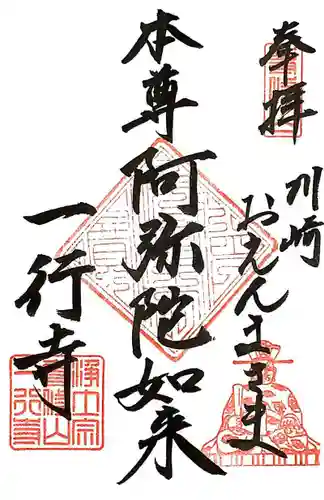 奉拝
川崎
おえんまさま
本尊 阿弥陀如来
一行寺
浄土宗
一行寺